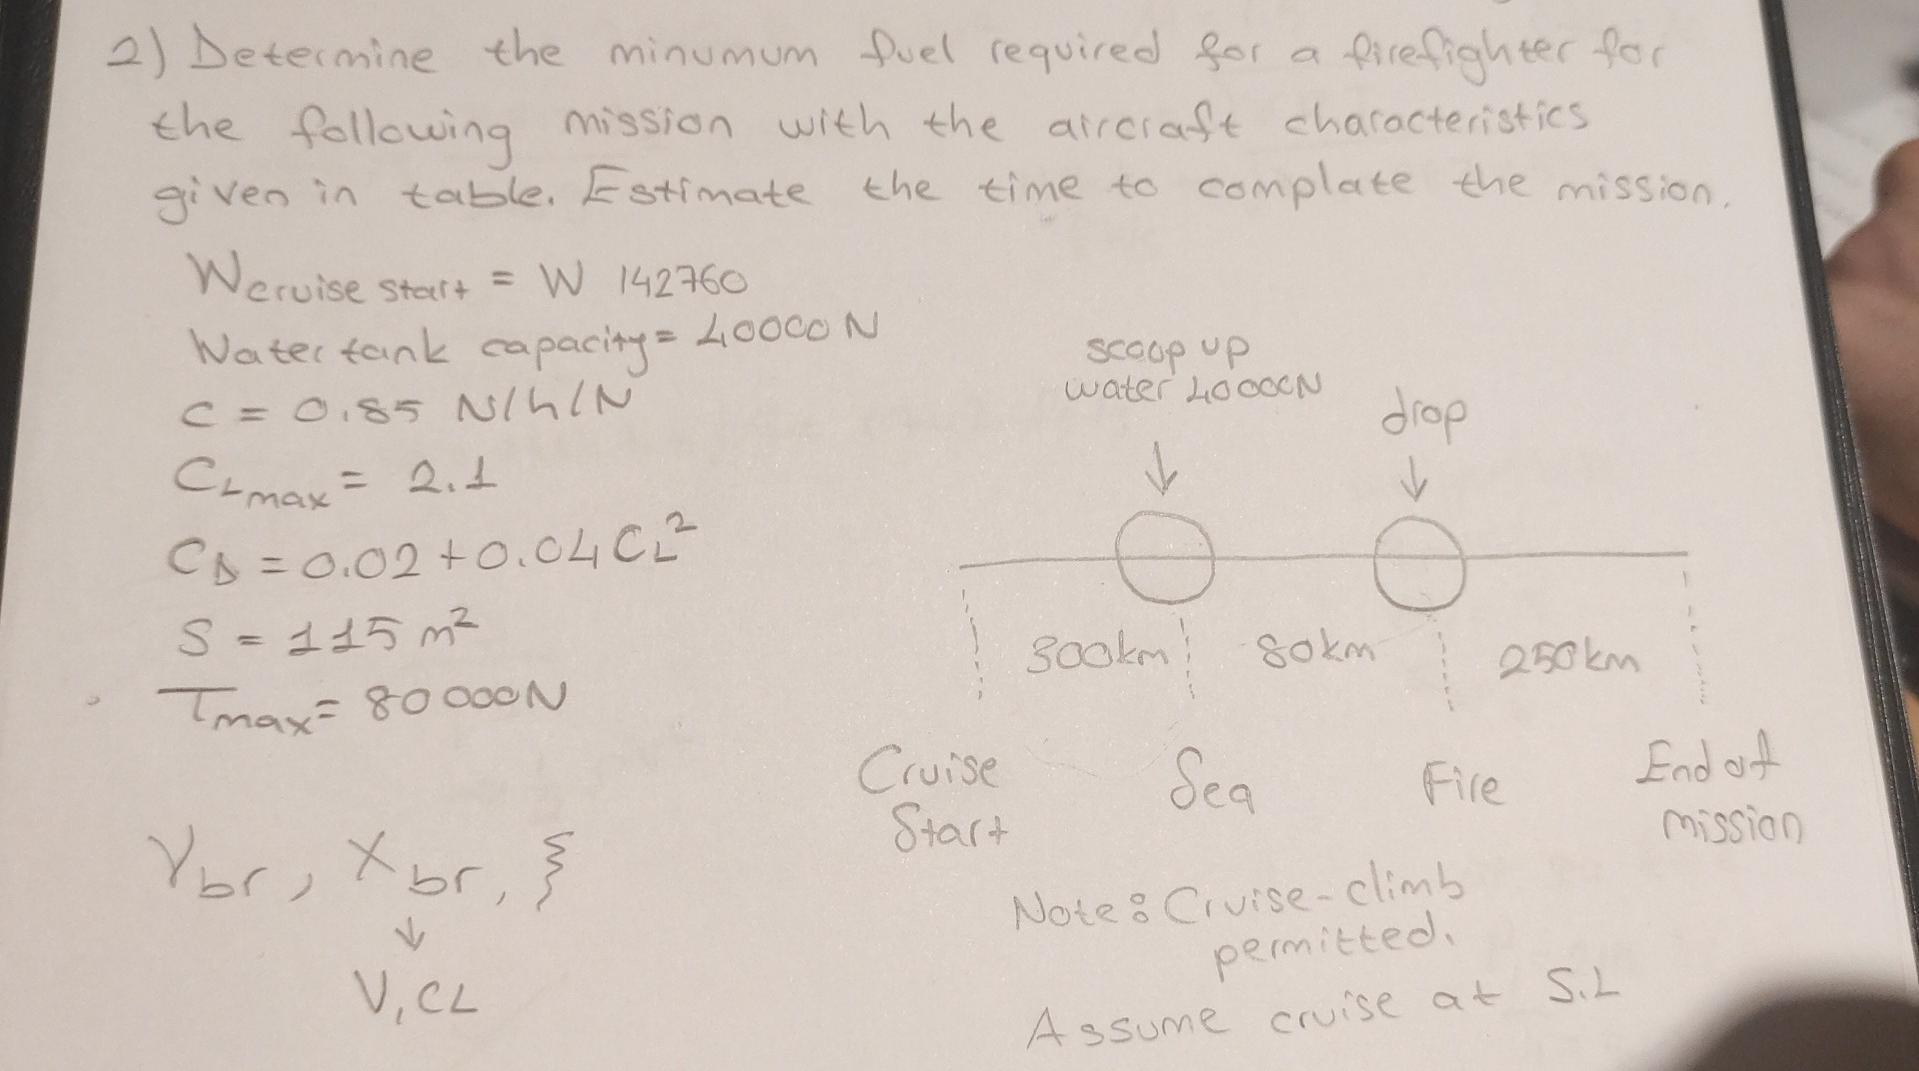 2) Determine the minumum fuel required for a firefighter for
the following mission with the aircraft characteristics
given in table. Estimate the time to complate the mission.
Wcruise start = W 142760
Water tank capacity = 40000 N
C = 0.85 N/h/N
CLmax = 2.1
CD = 0.02 + 0.04 CL²
S = 115 m²
Tmax = 80000N
Vbr, Xbr, }
↓
V, CL
scoop up
water 40000N
↓
drop
↓
300km
80km
250km
Cruise
Start
Sea
Fire
End of
mission
Note: Cruise-climb
permitted.
Assume cruise at S.L